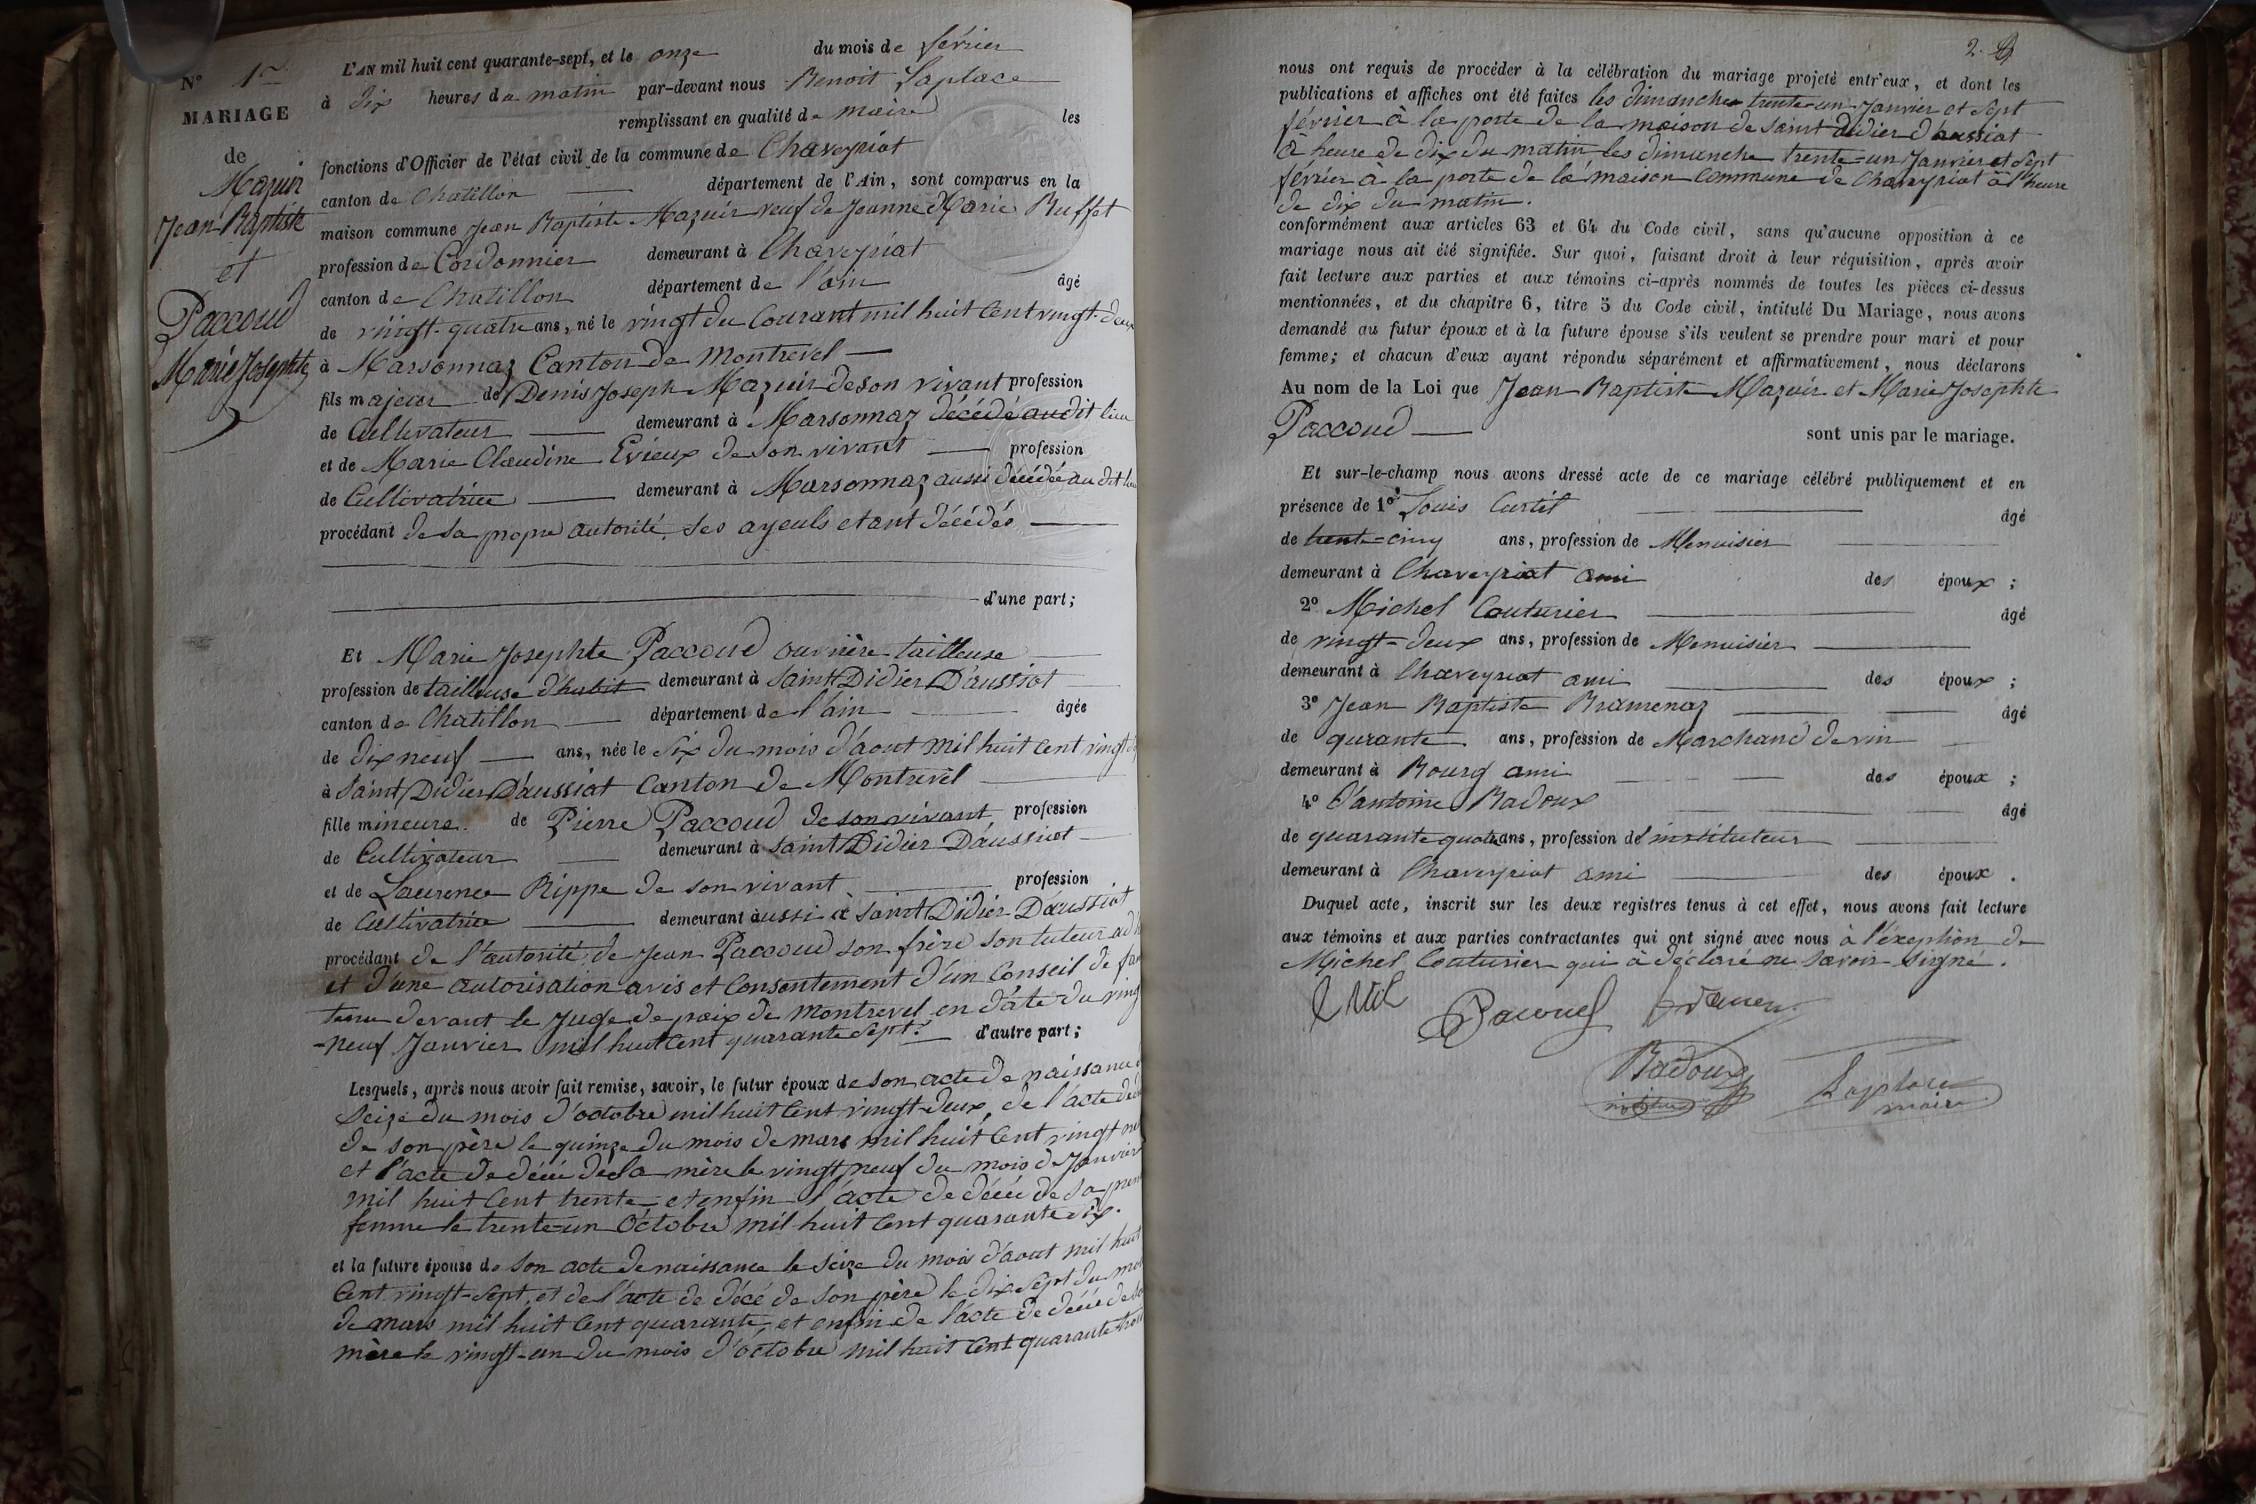 N° 1er
MARIAGE
de
Mazuir
Jean Baptiste
et
Paccoud
Marie Josephte
L'AN mil huit cent quarante-sept, et le onze du mois de février
à dix heures du matin par-devant nous Benoit Laplace
remplissant en qualité de maire les
fonctions d'Officier de l'état civil de la commune de Chaveyriat
canton de Chatillon département de l'Ain, sont comparus en la
maison commune Jean Baptiste Mazuir veuf de Jeanne Marie Buffet
profession de Cordonnier demeurant à Chaveyriat
canton de Chatillon département de l'ain âgé
de vingt-quatre ans, né le vingt du Courant mil huit Cent vingt-deux
à Marsonnaz Canton de Montrevel
fils majeur de Denis Joseph Mazuir de son vivant profession
de Cultivateur demeurant à Marsonnaz décédé audit lieu
et de Marie Claudine Evieux de son vivant profession
de Cultivatrice demeurant à Marsonnaz aussi décédée au dit lieu
procédant de sa propre autorité, ses ayeuls etant décédés
d'une part;
Et Marie Josephte Paccoud ouvrière tailleuse
profession de tailleuse d'habit demeurant à Saint Didier D'aussiat
canton de Chatillon département de l'ain âgée
de dix neuf ans, née le Six du mois d'aout mil huit Cent vingt
à Saint Didier D'aussiat Canton de Montrevel
fille mineure de Pierre Paccoud de son vivant profession
de Cultivateur demeurant à Saint Didier D'aussiat
et de Laurence Rippe de son vivant profession
de Cultivatrice demeurant aussi à Saint Didier D'aussiat
procédant de l'autorité de Jean Paccoud son frère son tuteur ad
et d'une autorisation avis et Consentement d'un Conseil de
tenu devant le Juge de paix de Montrevel en date du
-neuf Janvier mil huit Cent quarante Sept. d'autre part;
Lesquels, après nous avoir fait remise, savoir, le futur époux de son acte de naissance
Seize du mois d'octobre mil huit Cent vingt-deux, de l'acte de
de son père le quinze du mois de mars mil huit Cent vingt
et l'acte de décè de sa mère le vingt neuf du mois de Janvier
mil huit Cent trente et enfin l'acte de décè de sa
femme le trente-un Octobre mil huit Cent quarante Six.
et la future épouse de son acte de naissance le Seize du mois d'aout mil huit
Cent vingt-Sept, et de l'acte de décé de son père le dix Sept du
de mars mil huit Cent quarante, et enfin de l'acte de décè de
mère le vingt-un du mois d'octobre mil huit Cent quarante
2.
nous ont requis de procéder à la célébration du mariage projeté entr'eux, et dont les
publications et affiches ont été faites les dimanche trente-un Janvier et Sept
février à la porte de la maison de Saint didier d'aussiat
à heure de dix du matin les dimanche trente-un Janvier et Sept
février à la porte de la maison Commune de Chaveyriat à l'heure
de dix du matin.
conformément aux articles 63 et 64 du Code civil, sans qu'aucune opposition à ce
mariage nous ait été signifiée. Sur quoi, faisant droit à leur réquisition, après avoir
fait lecture aux parties et aux témoins ci-après nommés de toutes les pièces ci-dessus
mentionnées, et du chapitre 6, titre 5 du Code civil, intitulé Du Mariage, nous avons
demandé au futur époux et à la future épouse s'ils veulent se prendre pour mari et pour
femme; et chacun d'eux ayant répondu séparément et affirmativement, nous déclarons
Au nom de la Loi que Jean Baptiste Mazuir et Marie Josephte
Paccoud sont unis par le mariage.
Et sur-le-champ nous avons dressé acte de ce mariage célébré publiquement et en
présence de 1° Louis Curtil âgé
de trente-cinq ans, profession de Menuisier
demeurant à Chaveyriat ami des époux;
2° Michel Couturier âgé
de vingt-deux ans, profession de Menuisier
demeurant à Chaveyriat ami des époux;
3° Jean Baptiste Bramenaz âgé
de qurante ans, profession de Marchand de vin
demeurant à Bourg ami des époux;
4° D'antoine Badoux âgé
de quarante quatre ans, profession de l'instituteur
demeurant à Chaveyriat ami des époux.
Duquel acte, inscrit sur les deux registres tenus à cet effet, nous avons fait lecture
aux témoins et aux parties contractantes qui ont signé avec nous à l'exeption de
Michel Couturier qui à déclaré ne Savoir Signé.
Paccoud
Badoux
Laplace
maire